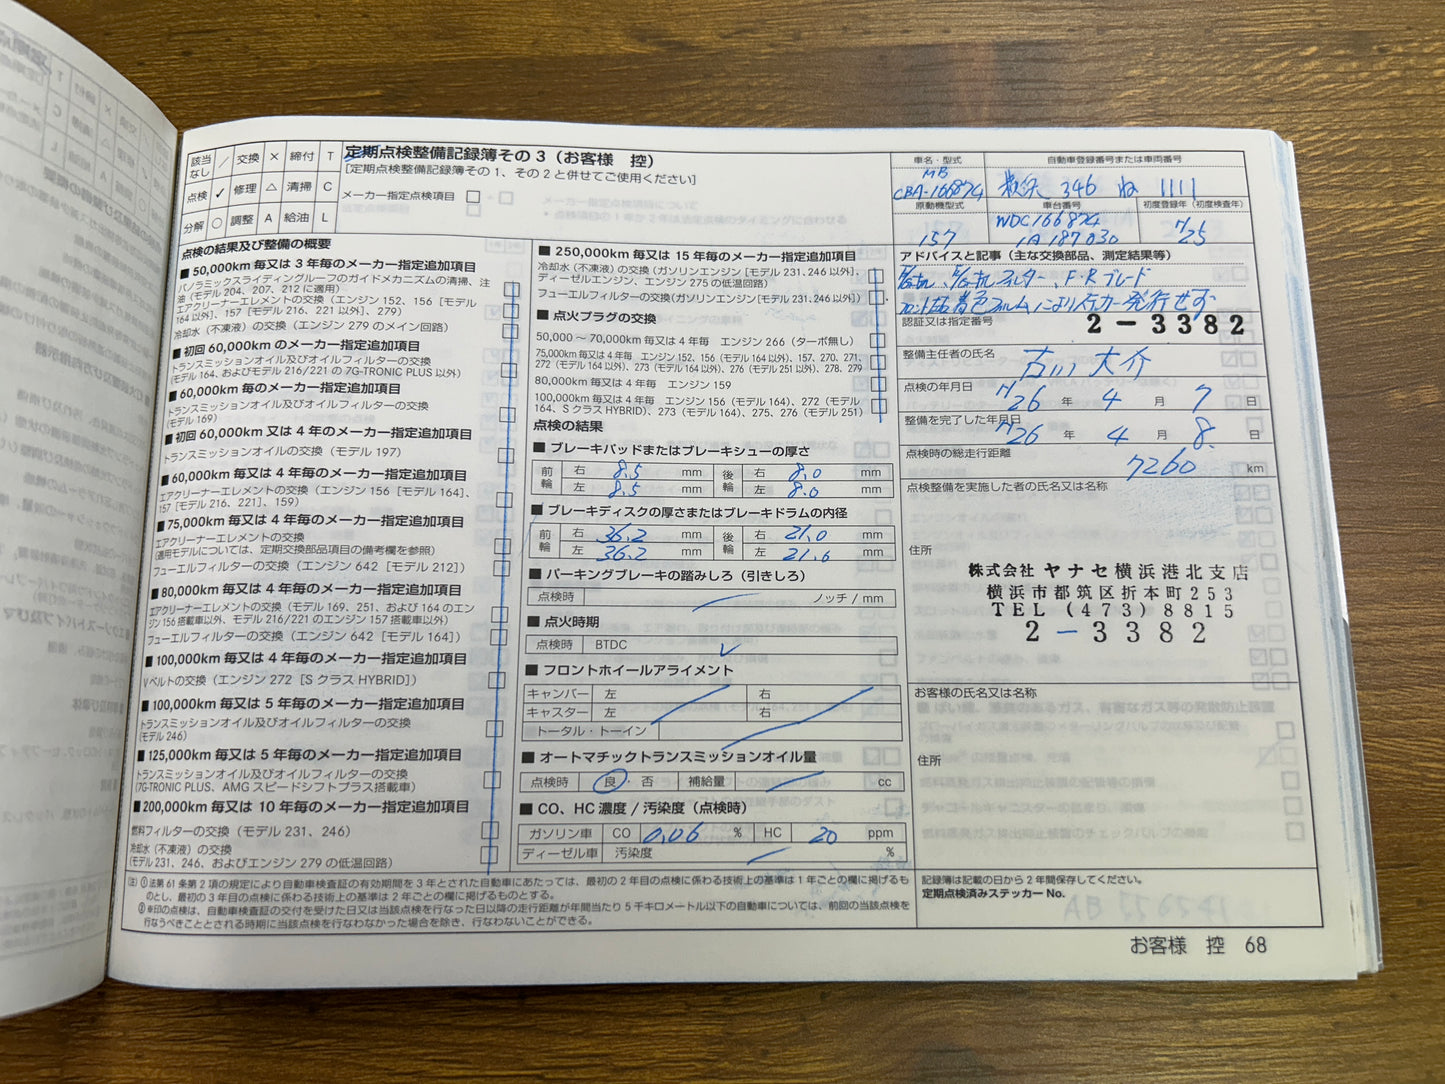 該当なし ／ 交換 × 締付 T
点検 ✓ 修理 △ 清掃 C
分解 ○ 調整 A 給油 L
定期点検整備記録簿その3（お客様 控）
[定期点検整備記録簿その1、その2と併せてご使用ください]
メーカー指定点検項目 □
点検の結果及び整備の概要
■ 50,000km 毎又は 3 年毎のメーカー指定追加項目
パノラミックスライディングルーフのガイドメカニズムの清掃、注
油（モデル 204、207、212 に適用）
エアクリーナーエレメントの交換（エンジン 152、156［モデル
164 以外］、157［モデル 216、221 以外］、279）
冷却水（不凍液）の交換（エンジン 279 のメイン回路）
■ 初回 60,000km のメーカー指定追加項目
トランスミッションオイル及びオイルフィルターの交換
(モデル 164、およびモデル 216/221 の 7G-TRONIC PLUS 以外)
■ 60,000km 毎のメーカー指定追加項目
トランスミッションオイル及びオイルフィルターの交換
(モデル 169)
■ 初回 60,000km 又は 4 年毎のメーカー指定追加項目
トランスミッションオイルの交換（モデル 197）
■ 60,000km 毎又は 4 年毎のメーカー指定追加項目
エアクリーナーエレメントの交換（エンジン 156［モデル 164］、
157［モデル 216、221］、159）
■ 75,000km 毎又は 4 年毎のメーカー指定追加項目
エアクリーナーエレメントの交換
(適用モデルについては、定期交換部品項目の備考欄を参照)
フューエルフィルターの交換（エンジン 642［モデル 212］）
■ 80,000km 毎又は 4 年毎のメーカー指定追加項目
エアクリーナーエレメントの交換（モデル 169、251、および 164 のエン
ジン 156 搭載車以外、モデル 216/221 のエンジン 157 搭載車以外）
フューエルフィルターの交換（エンジン 642［モデル 164］）
■ 100,000km 毎又は 4 年毎のメーカー指定追加項目
Vベルトの交換（エンジン 272［S クラス HYBRID］）
■ 100,000km 毎又は 5 年毎のメーカー指定追加項目
トランスミッションオイル及びオイルフィルターの交換
(モデル 246)
■ 125,000km 毎又は 5 年毎のメーカー指定追加項目
トランスミッションオイル及びオイルフィルターの交換
(7G-TRONIC PLUS、AMG スピードシフトプラス搭載車)
■ 200,000km 毎又は 10 年毎のメーカー指定追加項目
燃料フィルターの交換（モデル 231、246）
冷却水（不凍液）の交換
(モデル 231、246、およびエンジン 279 の低温回路)
■ 250,000km 毎又は 15 年毎のメーカー指定追加項目
冷却水（不凍液）の交換（ガソリンエンジン［モデル 231、246 以外］、
ディーゼルエンジン、エンジン 275 の低温回路）
フューエルフィルターの交換(ガソリンエンジン[モデル 231、246 以外])
■ 点火プラグの交換
50,000 ～ 70,000km 毎又は 4 年毎 エンジン 266（ターボ無し）
75,000km 毎又は 4 年毎 エンジン 152、156（モデル 164 以外）、157、270、271、
272（モデル 164 以外）、273（モデル 164 以外）、276（モデル 251 以外）、278、279
80,000km 毎又は 4 年毎 エンジン 159
100,000km 毎又は 4 年毎 エンジン 156（モデル 164）、272（モデル
164、S クラス HYBRID）、273（モデル 164）、275、276（モデル 251）
点検の結果
■ ブレーキパッドまたはブレーキシューの厚さ
前輪 右 8.5 mm 後輪 右 8.0 mm
左 8.5 mm 左 8.0 mm
■ ブレーキディスクの厚さまたはブレーキドラムの内径
前輪 右 36.2 mm 後輪 右 21.0 mm
左 36.2 mm 左 21.0 mm
■ パーキングブレーキの踏みしろ（引きしろ）
点検時 ノッチ / mm
■ 点火時期
点検時 BTDC ✓
■ フロントホイールアライメント
キャンバー 左 右
キャスター 左 右
トータル・トーイン
■ オートマチックトランスミッションオイル量
点検時 良・否 補給量 cc
■ CO、HC 濃度 / 汚染度（点検時）
ガソリン車 CO 0.06 % HC 20 ppm
ディーゼル車 汚染度 %
車名・型式
MB
CBA-166874
自動車登録番号または車両番号
横浜 346 ね 1111
原動機型式
157
車台番号
WDC166874
1A187030
初度登録年（初度検査年）
H25
アドバイスと記事（主な交換部品、測定結果等）
フィルター、F・Rブレード
認証又は指定番号
2-3382
整備主任者の氏名
古川 大介
点検の年月日
H26 年 4 月 7 日
整備を完了した年月日
H26 年 4 月 8 日
点検時の総走行距離
7260 km
点検整備を実施した者の氏名又は名称
住所
株式会社 ヤナセ横浜港北支店
横浜市都筑区折本町２５３
TEL (473) 8815
2-3382
お客様の氏名又は名称
住所
記録簿は記載の日から 2 年間保存してください。
定期点検済みステッカー No.
(注) ① 法第 61 条第 2 項の規定により自動車検査証の有効期間を 3 年とされた自動車にあたっては、最初の 2 年目の点検に係わる技術上の基準は 1 年ごとの欄に掲げるも
のとし、最初の 3 年目の点検に係わる技術上の基準は 2 年ごとの欄に掲げるものとする。
② ※印の点検は、自動車検査証の交付を受けた日又は当該点検を行なった日以降の走行距離が年間当たり 5 千キロメートル以下の自動車については、前回の当該点検を
行なうべきこととされる時期に当該点検を行なわなかった場合を除き、行なわないことができる。
お客様 控 68